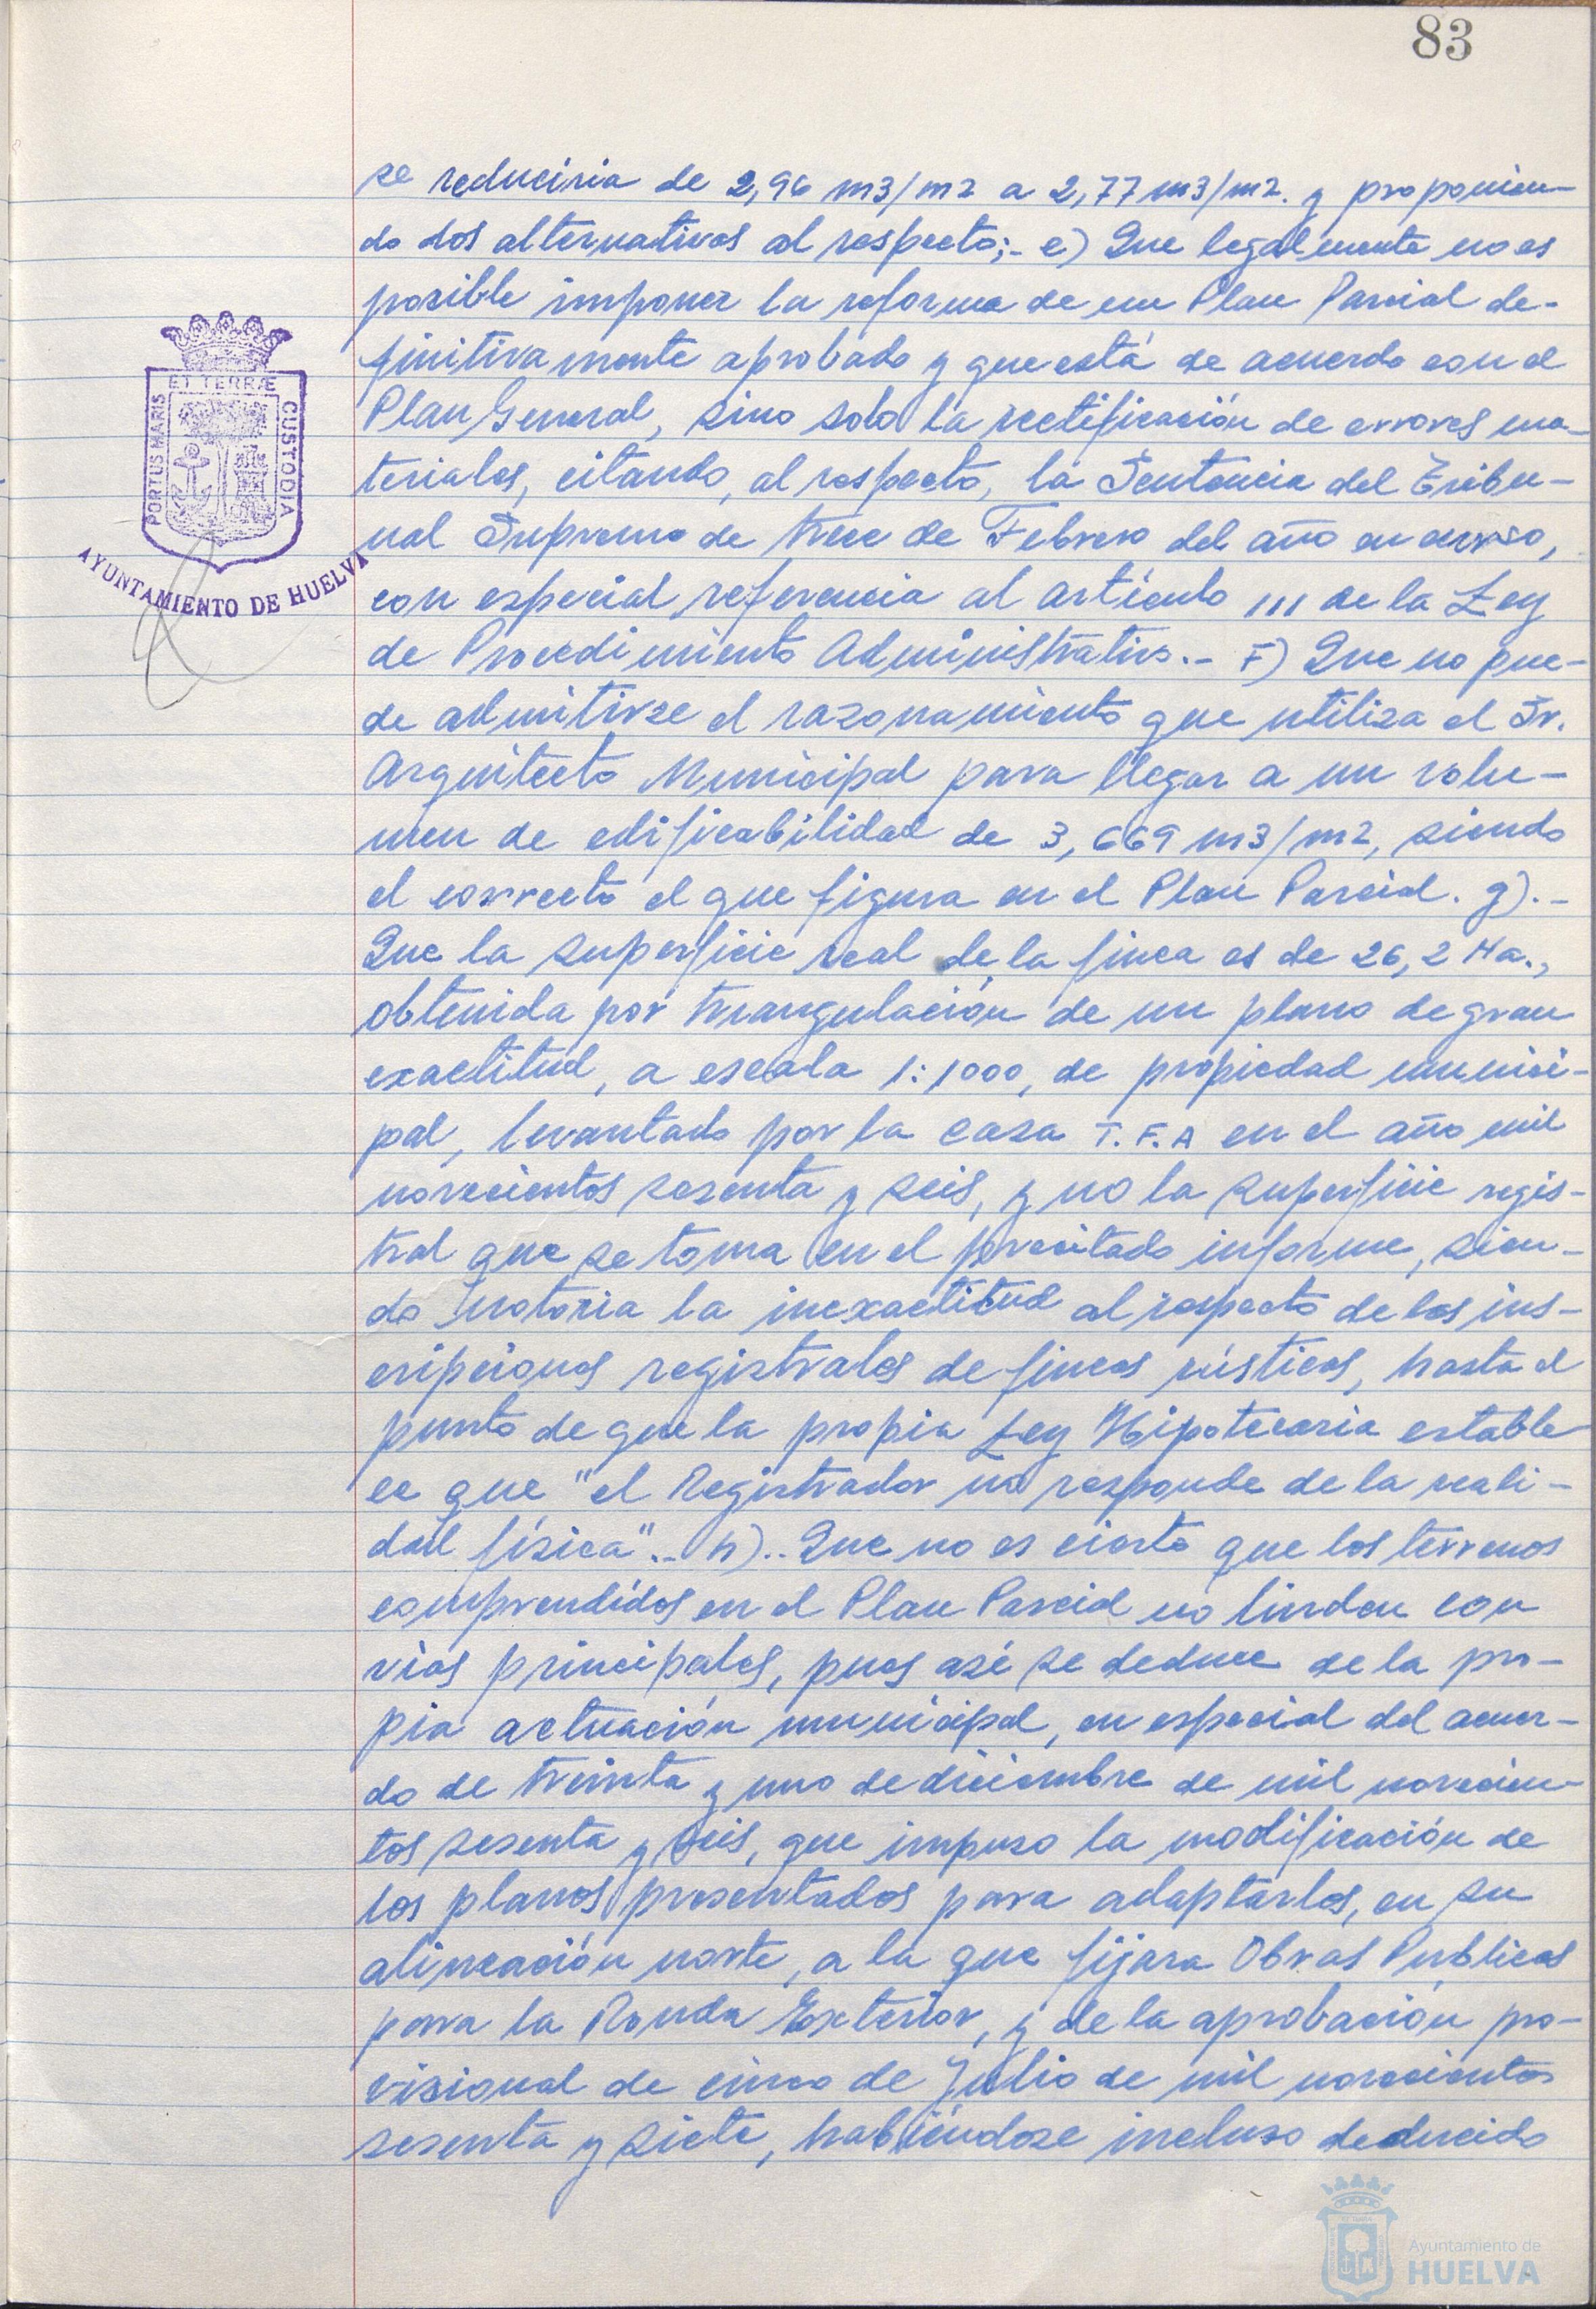 83
se reduciria de 2,96 m3/m2 a 2,77 m3/m2. y proponien-
do dos alternativas al respecto;- e) Que legalmente no es
posible imponer la reforma de un Plan Parcial de-
finitivamente aprobado y que está de acuerdo con el
Plan General, sino solo la rectificación de errores ma-
teriales, citando, al respecto, la Sentencia del Tribu-
nal Supremo de trece de Febrero del año en curso,
con especial referencia al artículo 111 de la Ley
de Procedimiento Administrativo.- F) Que no pue-
de admitirse el razonamiento que utiliza el Sr.
Arquitecto Municipal para llegar a un volu-
men de edificabilidad de 3,669 m3/m2, siendo
el correcto el que figura en el Plan Parcial. g).-
Que la superficie real de la finca es de 26,2 Ha.,
obtenida por triangulación de un plano de gran
exactitud, a escala 1:1000, de propiedad munici-
pal, levantado por la casa T.F.A en el año mil
novecientos sesenta y seis, y no la superficie regis-
tral que se toma en el precitado informe, sien-
do notoria la inexactitud al respecto de las ins-
cripciones registrales de fincas rústicas, hasta el
punto de que la propia Ley Hipotecaria estable
ce que "el Registrador no responde de la reali-
dad física".- h).. Que no es cierto que los terrenos
comprendidos en el Plan Parcial no linden con
vias principales, pues asi se deduce de la pro-
pia actuación municipal, en especial del acuer-
do de treinta y uno de diciembre de mil novecien-
tos sesenta y seis, que impuso la modificación de
los planos presentados para adaptarlos, en su
alineación norte, a la que fijara Obras Publicas
para la Ronda Exterior, y de la aprobación pro-
visional de cinco de Julio de mil novecientos
sesenta y siete, habiéndose incluso deducido
PORTUS MARIS
ET TERRÆ
CUSTODIA
AYUNTAMIENTO DE HUELVA
Ayuntamiento de
HUELVA